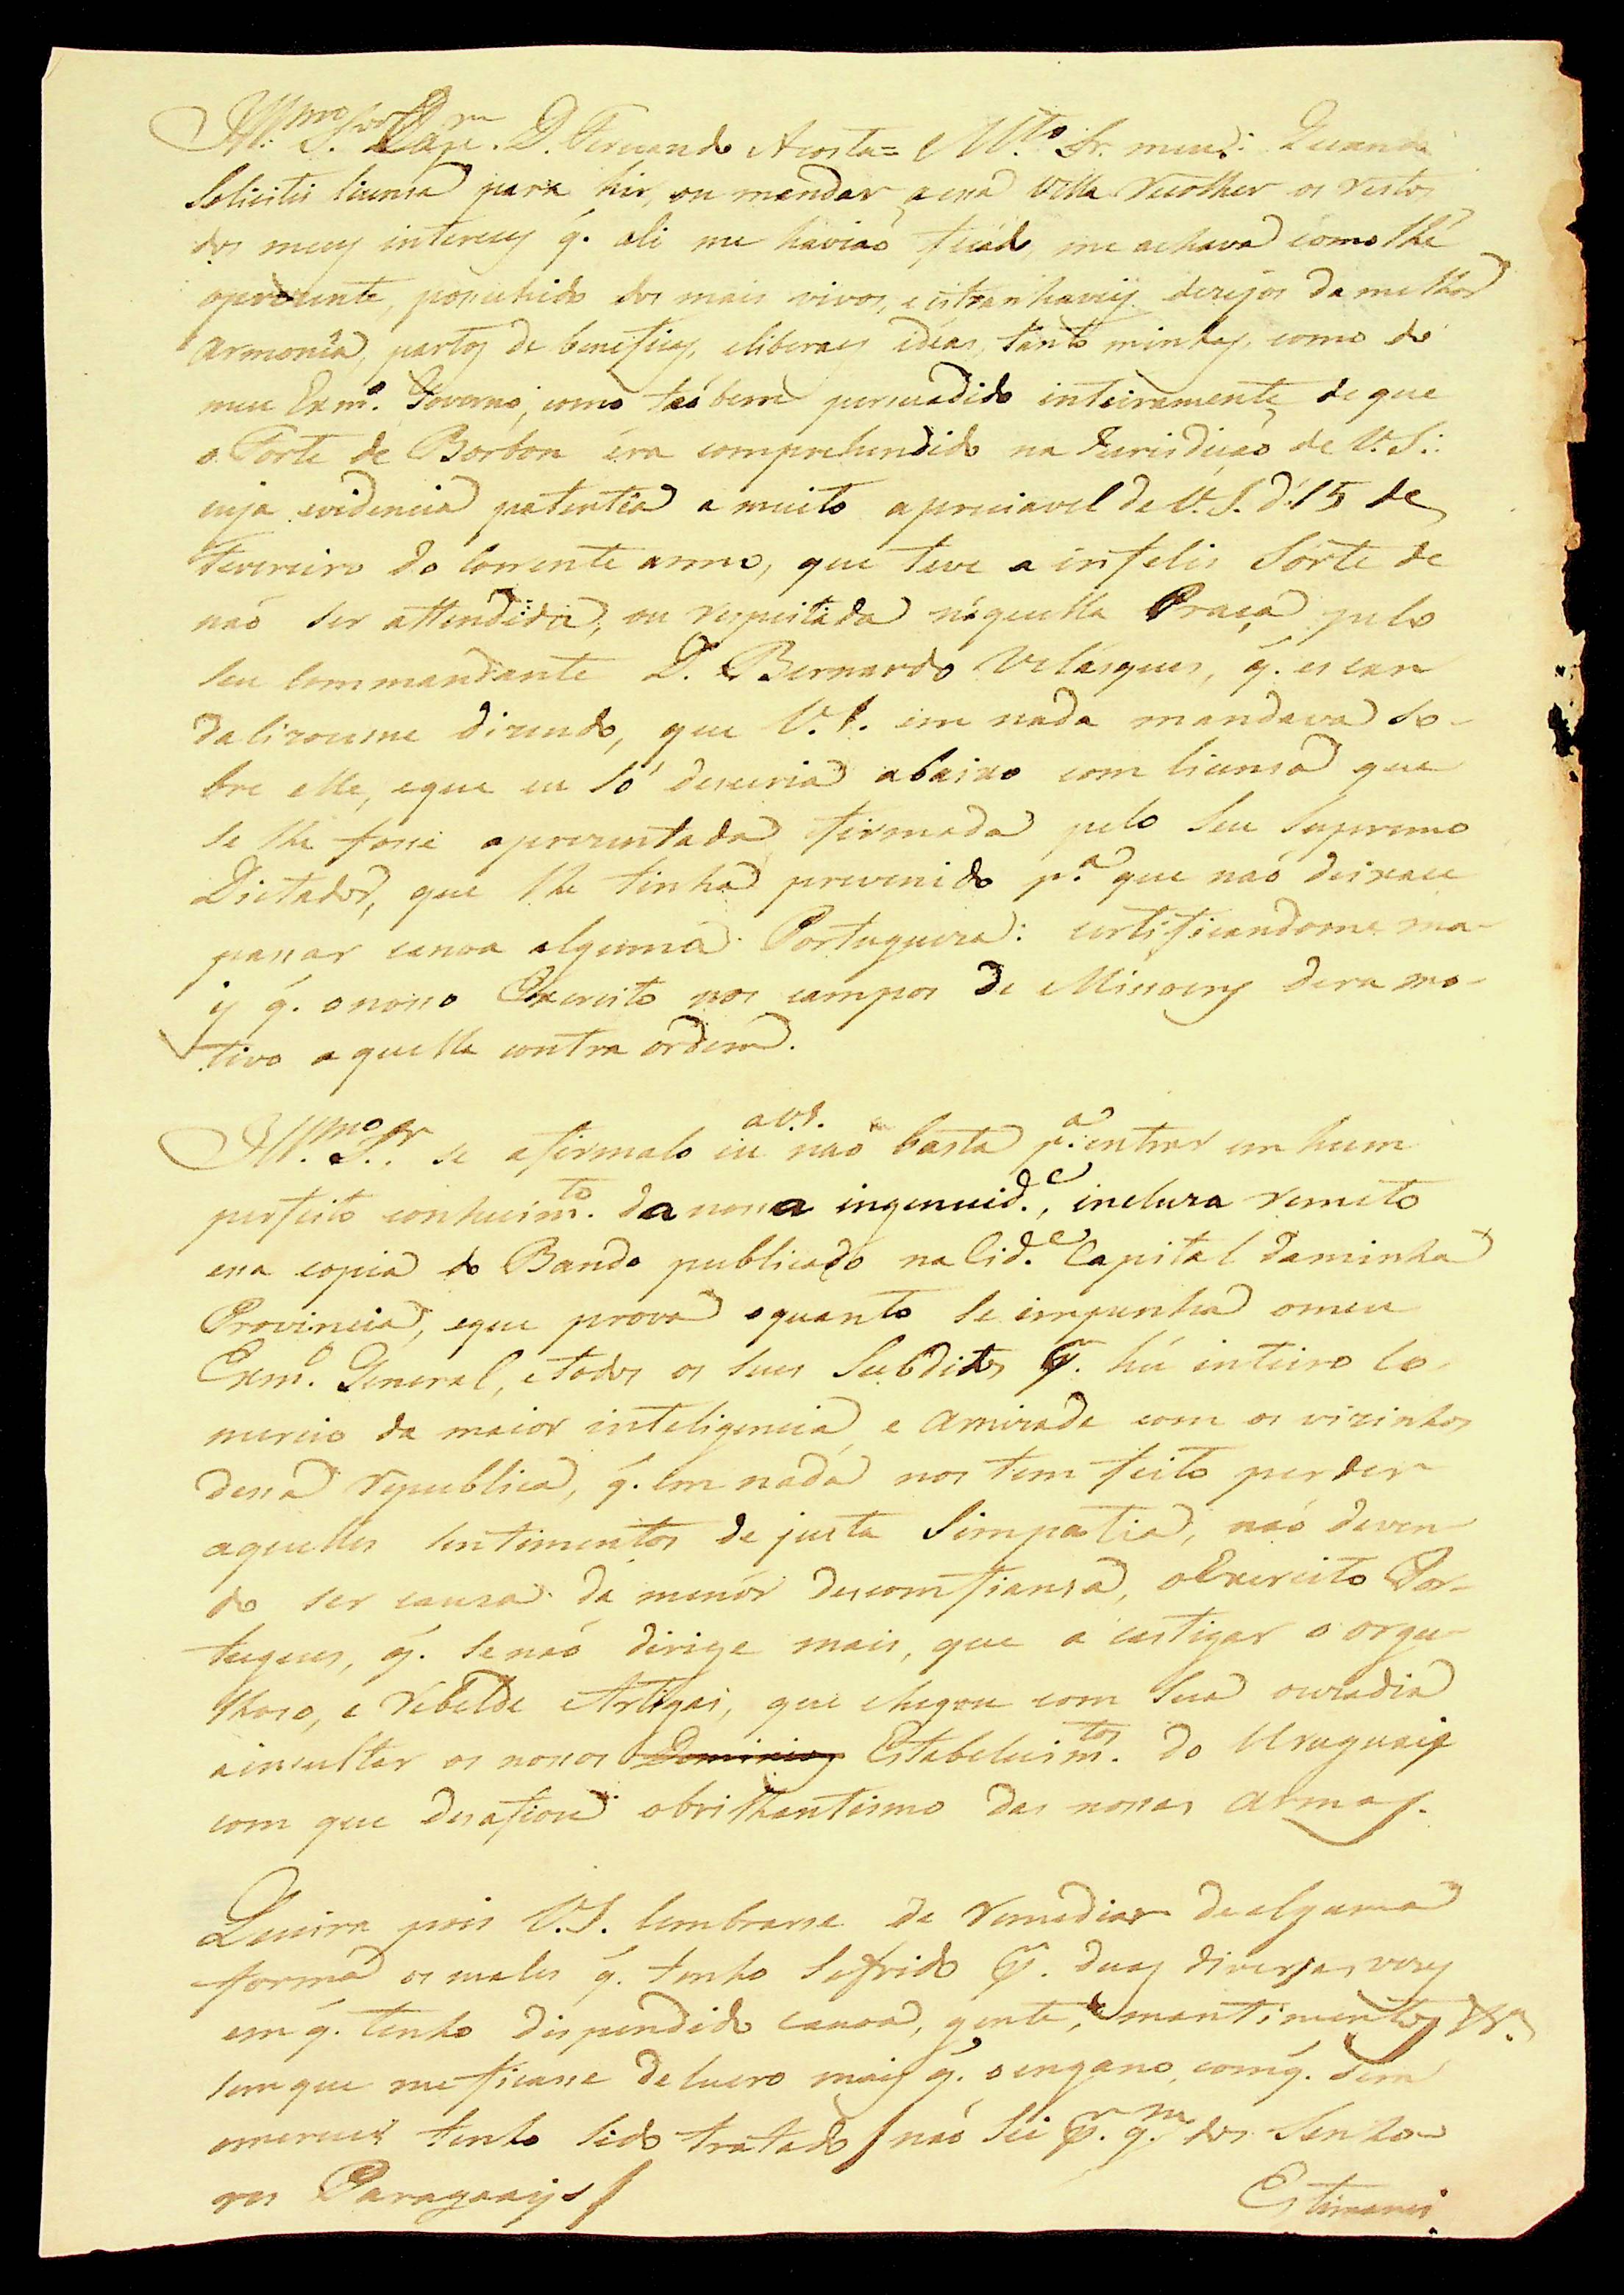 Ill.mo S.or Cap.m D. Fernando Acosta = M.to Sr. meu: Quando
Solicitei licensa para hir, ou mandar a essa Villa recolher os restos
dos meuz interecez q. ali me haviaõ ficado, me achava como lhé
aprezente, possuhido dos mais vivos, e estranhaveiz dezejos da melhor
armonîa, partoz de beneficaz, e liberaes idéas, tanto minhaz, como dó
meu Exm.o Governo, como taóbem persuadido inteiramente de que
o Forte de Borbon éra comprehendido na Jurisdiçaõ de V. S.:
cuja evidencia patentêa a muito apreciavel de V. S. d' 15 de
Fevereiro do Corrente anno, que teve a infelis Sórte de
naõ ser attendida, ou respeitada náquella Praça pelo
seu Commandante D. Bernardo Velásques, q. escan
dalizoume dizendo, que V. S. em nada mandava so-
bre elle, eque eu só desceria abaixo com licensa que
se lhe fosse aprezentada firmada pelo Seu Supremo
Dictador, que lhe tinha prevenido p.a que naõ deixace
passar canoa alguma Portugueza: certificandome ma-
iz q. onosso Exercito nos campos de Missoenz dera mo-
tivo aquella contra ordem.
Ill.mo S.or se afirmalo eu a V. S. naõ basta p.a entrar em hum
perfeito conhecim.to da nossa ingenuid.e, incluza remeto
essa copia do Bando publicado na Cid.e Capital daminha
Provincia, eque prova oquanto se empenha omeu
Exm.o General, etodos os seus Subditos p.r hú inteiro Co-
mercio da maior inteligencia, e amizade com os vizinhos
dessa Republica, q. em nada nos tem feito perder
aquelles sentimentos de justa Simpatia, naõ deven
do ser cauza da menór descomfiansa, oExercito Por-
tugues, q. senaõ dirige mais, que a castigar o orgu-
lhoso, e Rebelde Artigas, que chegou com sua ouzadia
ainsultar os nossos Dominioz Estabelecim.tos do Uruguay
com que desafiou obrilhantismo das nossas armas.
Queira pois V. S. lembrarse de remediar dealguma
forma os males q. tenho sofrido p.r duaz diversas vezez
em q. tenho dispendido canoa, gente, e mantimentoz &.a
semque meficasse delucro maiz q. o engano, comq. sem
omerecer tenho sido tratado / naõ Sei p.r q.m dos Senho-
res Paragoays /
Estimarei